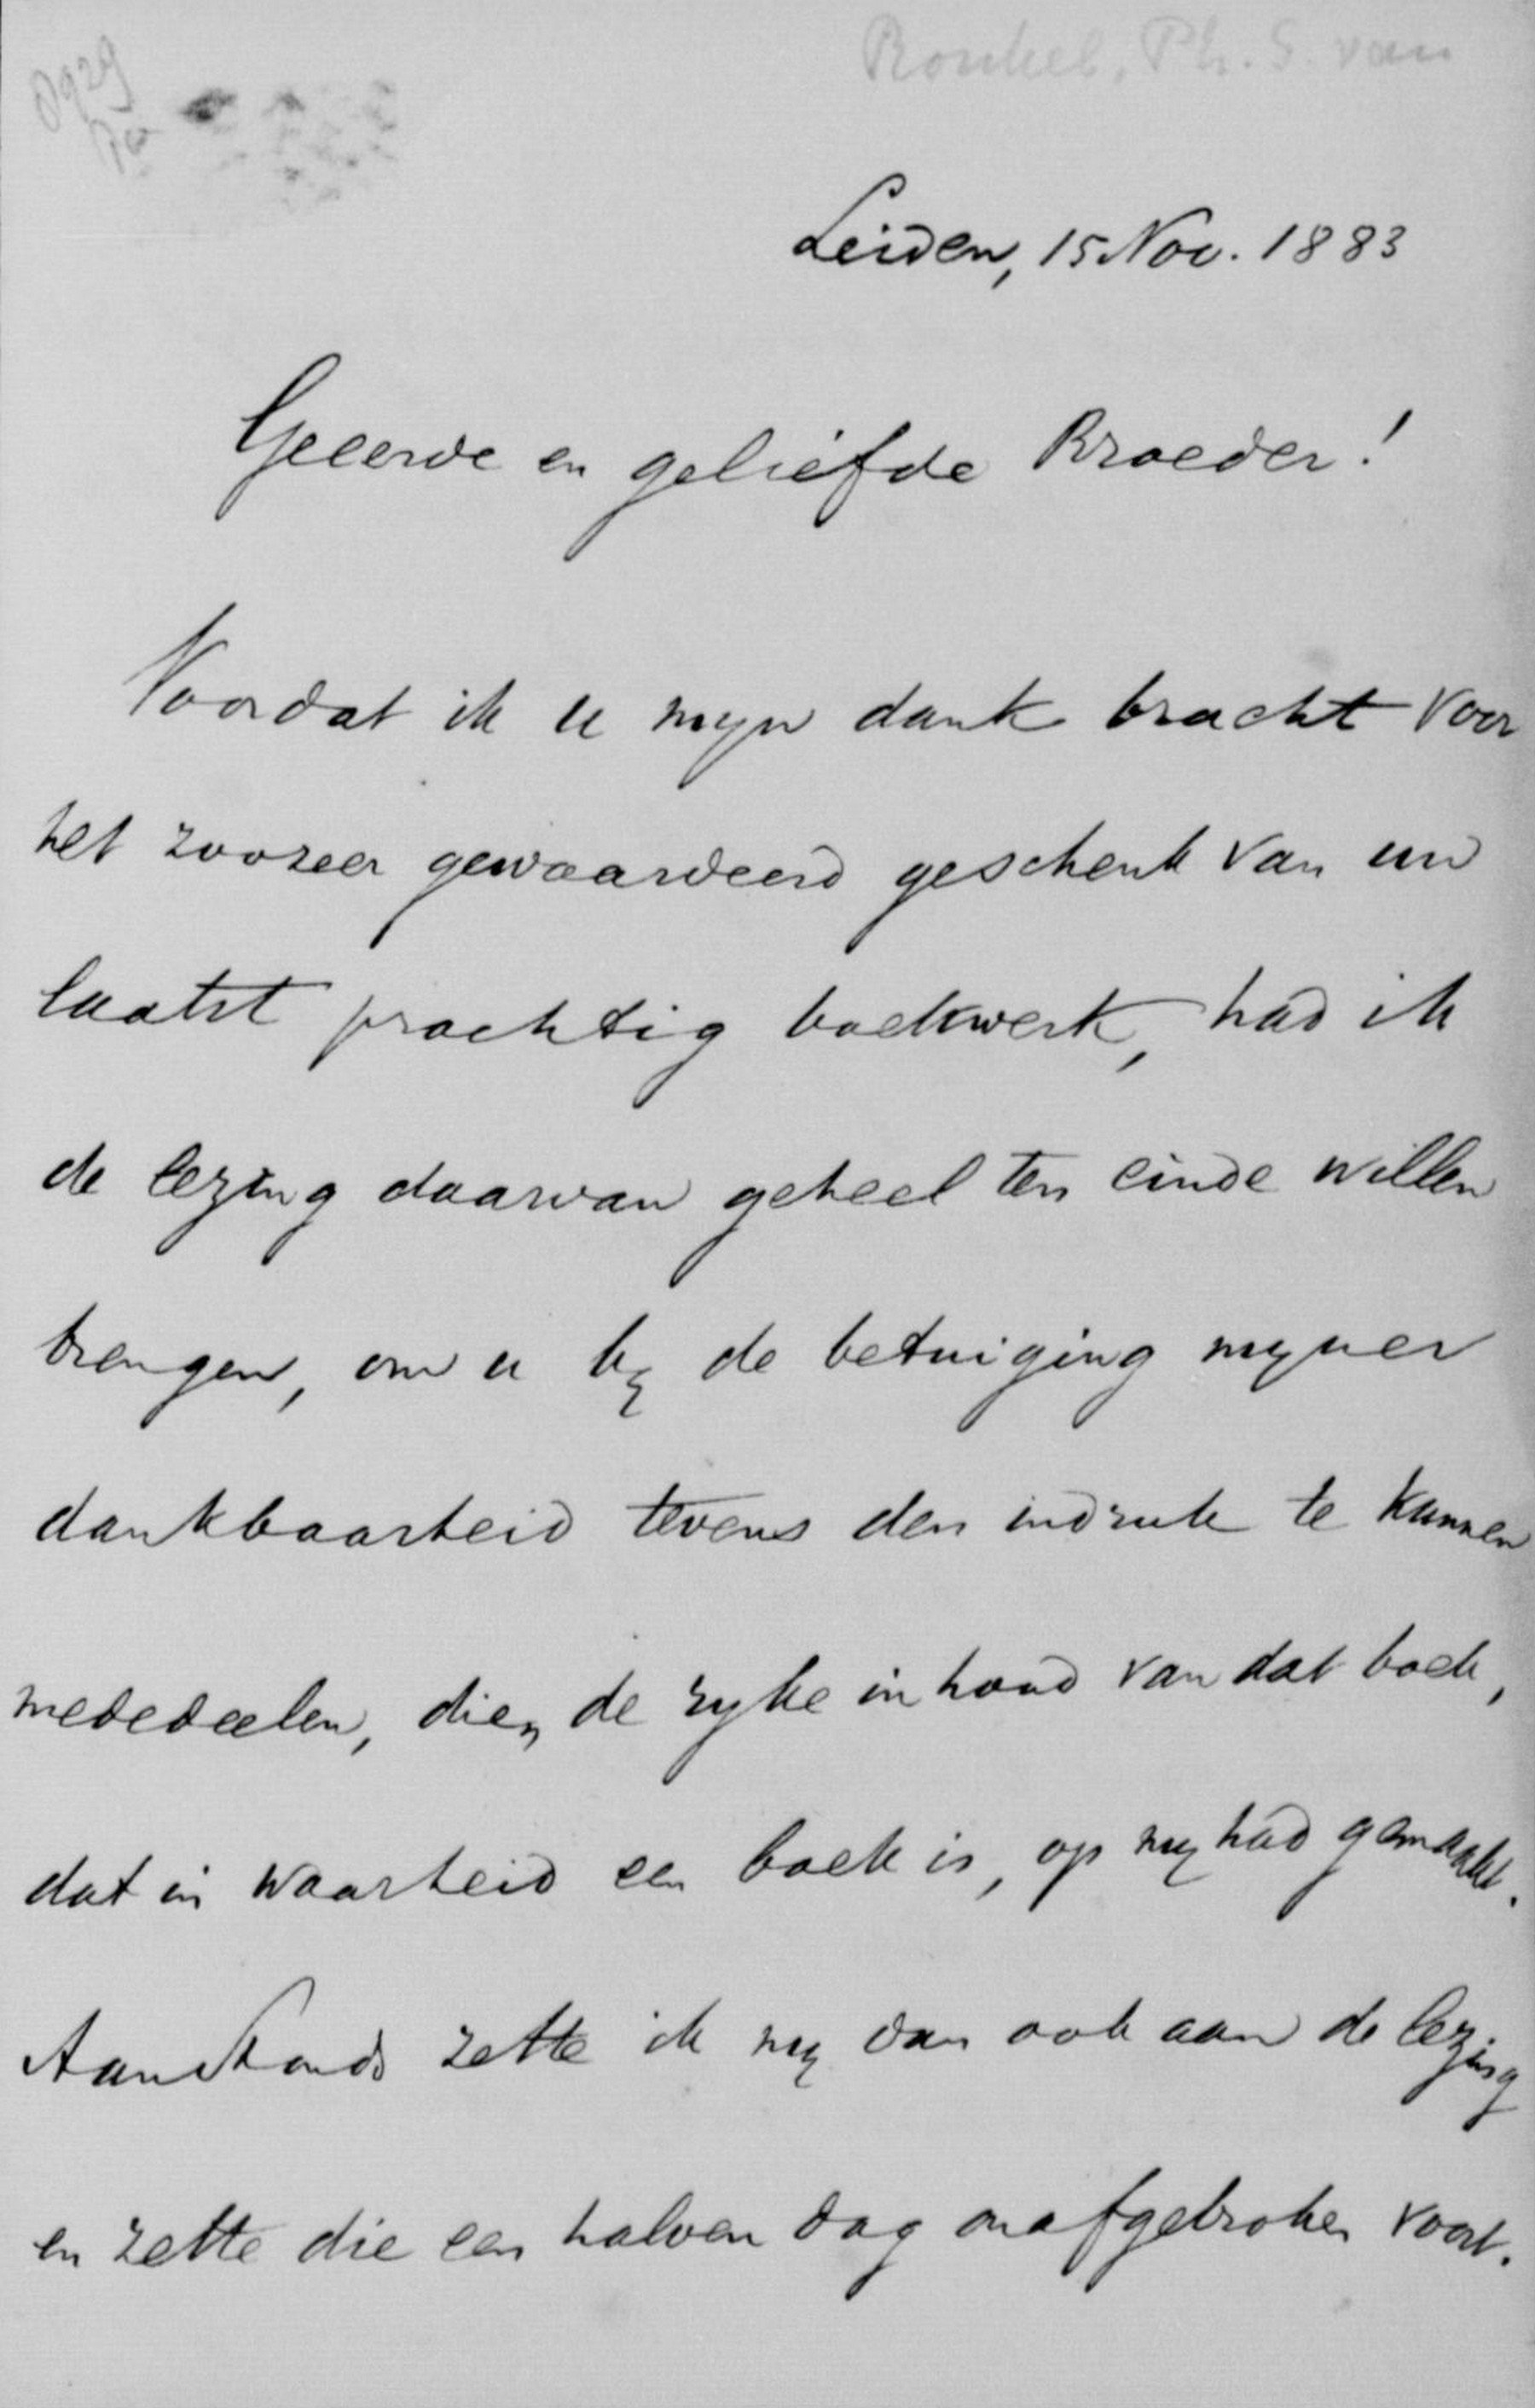 Ronkel, Ph. S. van
0929
Leiden, 15 Nov. 1883
Geeerde en geliefde Broeder!
Voordat ik u myn dank bracht voor
het zoozeer gewaardeerd geschenk van uw
laatst prachtig boekwerk, had ik
de lezing daarvan geheel ten einde willen
brengen, om u by de betuiging myner
dankbaarheid tevens den indruk te kunnen
mededeelen, dien de ryke inhoud van dat boek,
dat in waarheid een boek is, op my had gemaakt.
Aanstonds zette ik my dan ook aan de lezing
en zette die een halven dag onafgebroken voort.